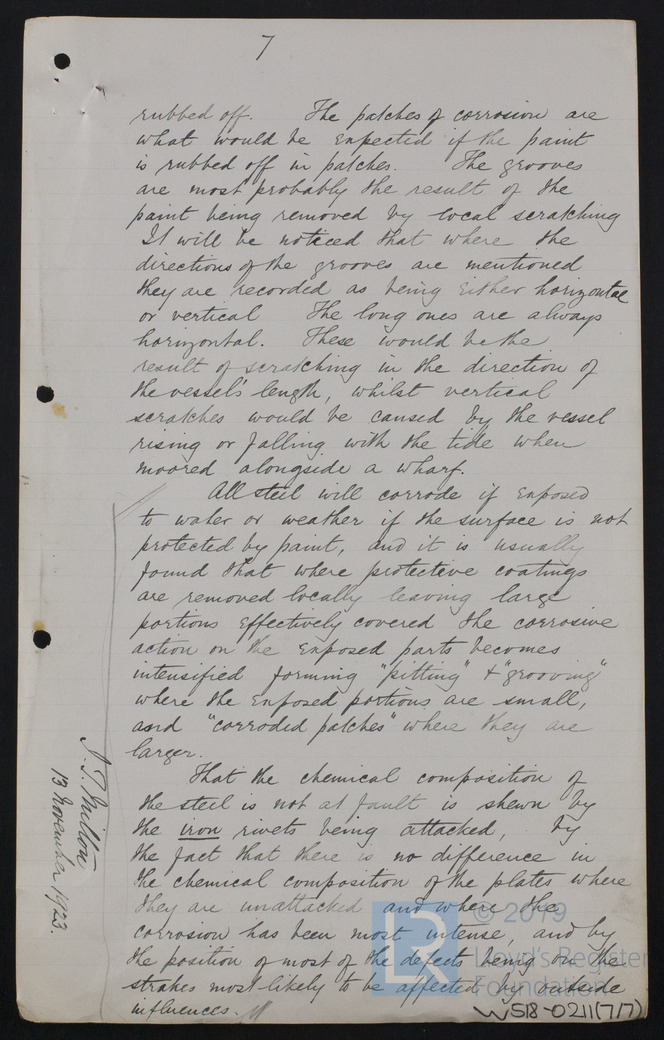 7
rubbed off. The patches of corrosion are
what would be expected if the paint
is rubbed off in patches. The grooves
are most probably the result of the
paint being removed by local scratching
It will be noticed that where the
directions of the grooves are mentioned
they are recorded as being either horizontal
or vertical The long ones are always
horizontal. These would be the
result of scratching in the direction of
the vessel's length, whilst vertical
scratches would be caused by the vessel
rising or falling with the tide when
moored alongside a wharf.
All steel will corrode if exposed
to water or weather if the surface is not
protected by paint, and it is usually
found that where protective coatings
are removed locally leaving large
portions effectively covered the corrosive
action on the exposed parts becomes
intensified forming "pitting" & "grooving"
where the exposed portions are small,
and "corroded patches" where they are
larger.
That the chemical composition of
the steel is not at fault is shewn by
the iron rivets being attacked, by
the fact that there is no difference in
the chemical composition of the plates where
they are unattacked and where the
corrosion has been most intense, and by
the position of most of the defects being on the
strakes most likely to be affected by outside
influences.
J. T. Milton
13 November 1923.
© 2019
Lloyd's Register
Foundation
LR
W518-0211(7/7)